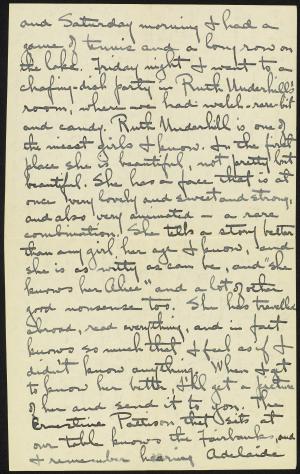 and Saturday morning I had a
game of tennis and a long row on
the lake. Friday night I went to a
chafing-dish party in Ruth Underhill's
room, where we had welch-rare-bit
and candy. Ruth Underhill is one of
the nicest girls I know. In the first
place she is beautiful, not pretty but
beautiful. She has a face that is at
once very lovely and sweet and strong,
and also very animated – a rare
combination. She tells a story better
than any girl her age I know, and
she is as witty as can be, and "she
knows her Alice" and a lot of other
good nonsense too. She has travelled
abroad, read everything, and in fact
knows so much that I feel as if I
didn't know anything. When I get
to know her better I'll get a picture
of her and send it to you. The
Ernestine Pattison that sits at
our table knows the Fairbanks, and
I remember hearing Adelaide